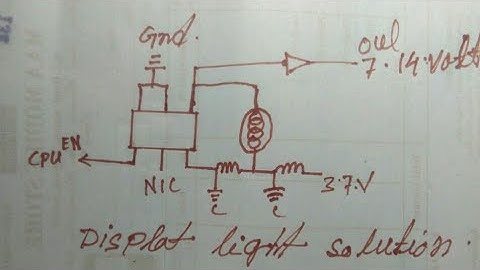 Gnd.
out
7.14.Volt
EN
CPU
NIC
3.7.V
c
c
Displat light solution.